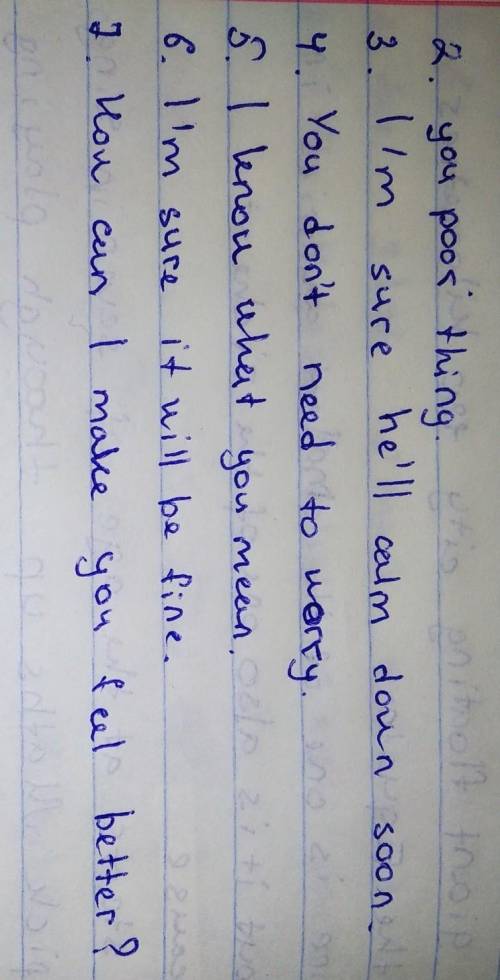 2. you poor thing.
3. I'm sure he'll calm down soon.
4. You don't need to worry.
5. I know what you mean.
6. I'm sure it will be fine.
7. How can I make you feel better?